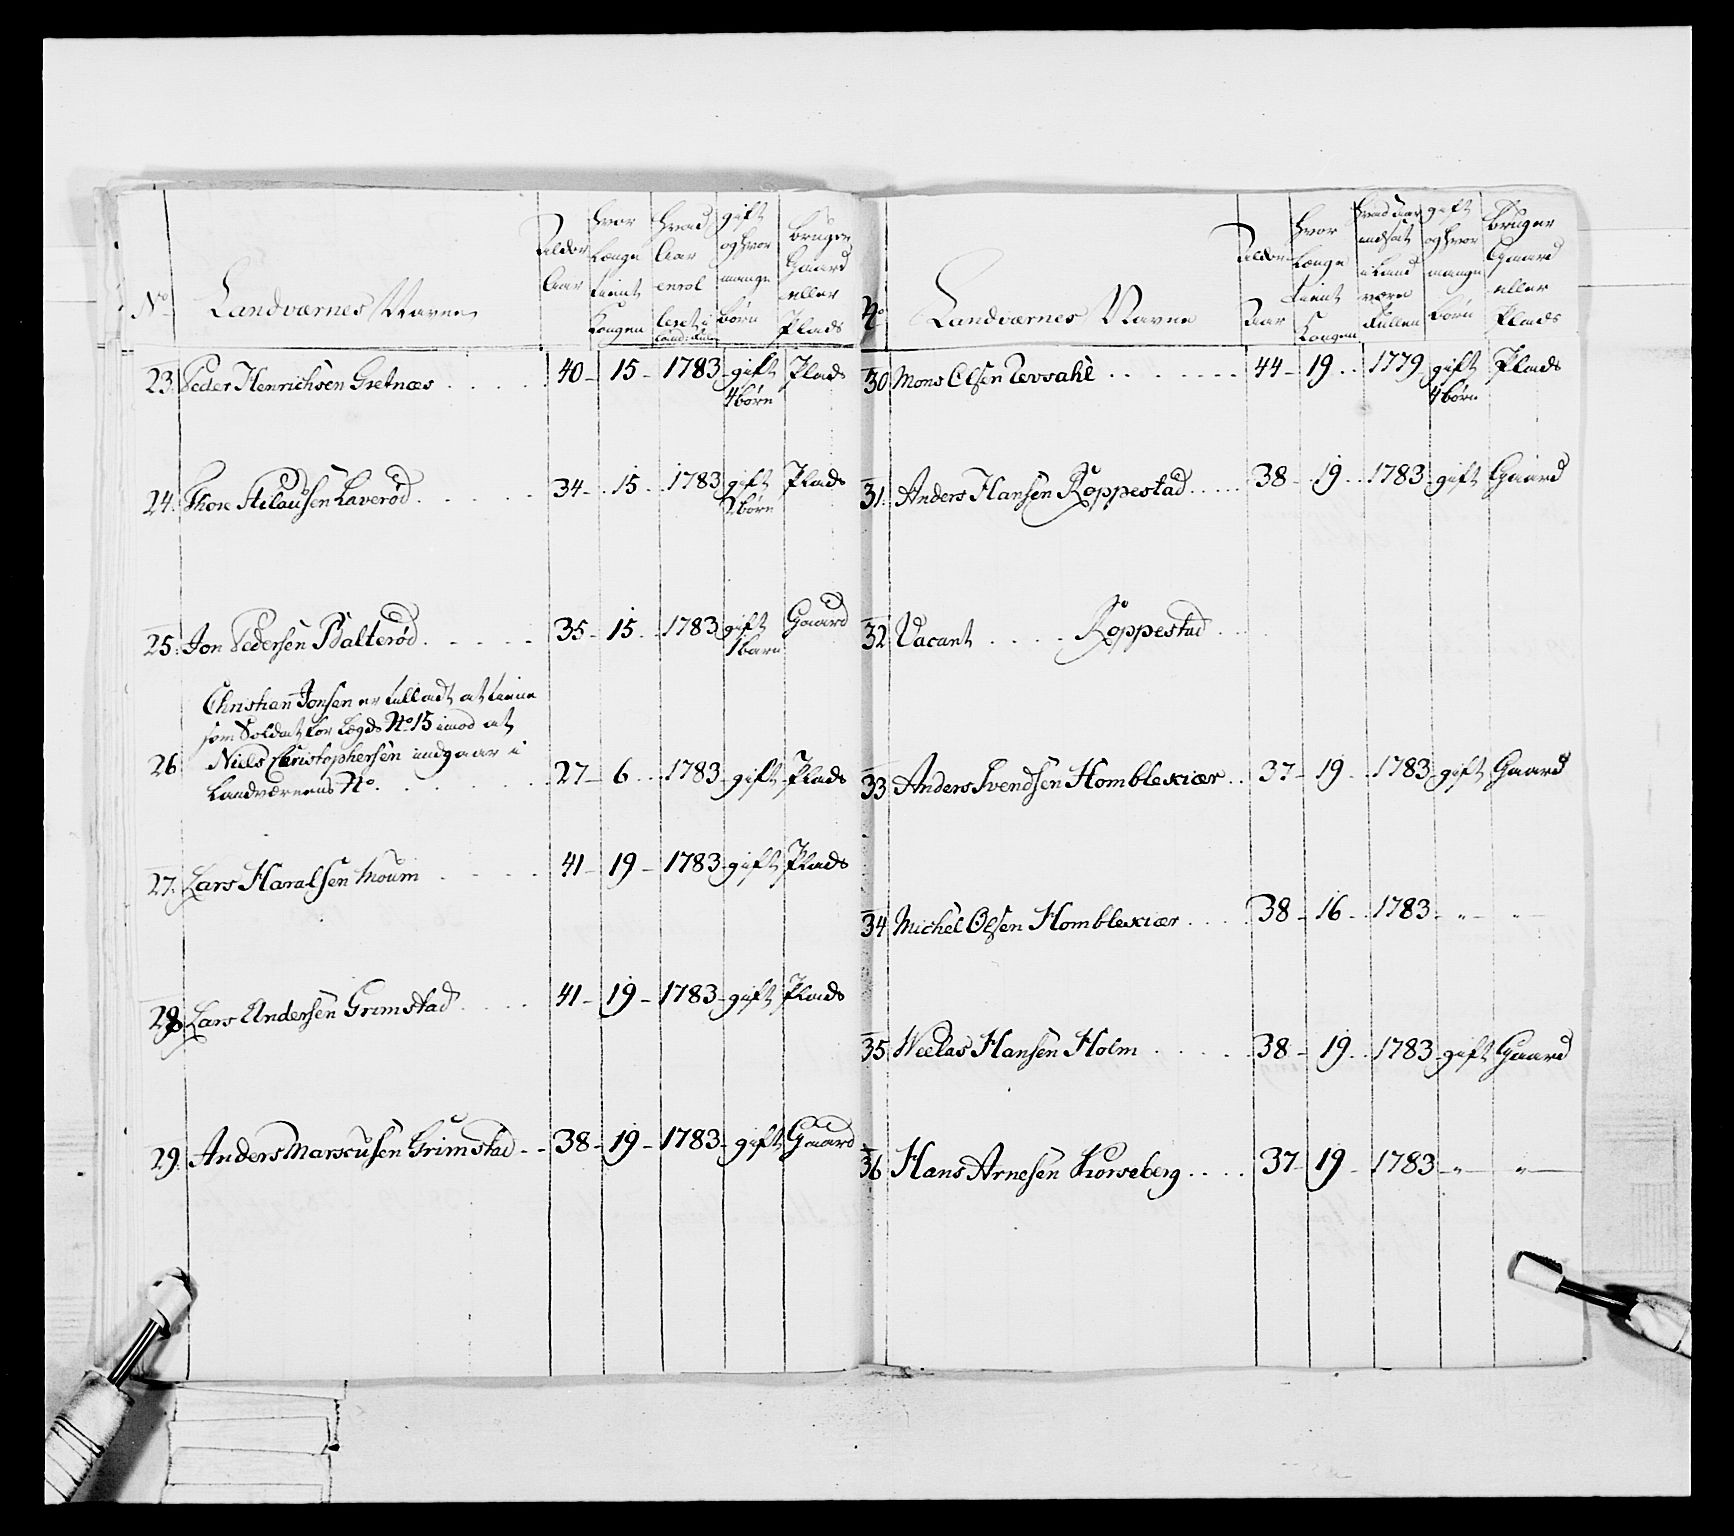 No Landværnes Navne Alder Aar hvor Længe tient Kongen hvad Aar enrol leret i Land: Rul gift og hvor mange børn bruger Gaard eller Plads
23. Peder Henrichsen Gretnæs 40 - 15 - 1783 - gift Plads
4 børn
24. Thore Laverød 34 - 15 - 1783 gift Plads
2 børn
25. Jon Pedersen Balterød 35 - 15 - 1783 gift Gaard
1 barn
Christian Jonsen er tilladt at tiene
som Soldat for Lægds No 15 imod at
26. Niels Christophersen indgaar i
Landværnens No. 27 - 6 - 1783 - gift Plads
27. Lars Haralsen Moum 41 - 19 - 1783 - gift Plads
28 Lars Andersen Grimstad 41 - 19 - 1783 - gift Plads
29. Anders Marcusen Grimstad - - 38 - 19 - 1783 - gift Gaard
No Landværnes Navne Alder Aar hvor Længe tient Kongen hvad Aar indsat i Land værn Rullen gift og hvor mange børn bruger Gaard eller Plads
30 Mons Olsen 44 - 19 - 1779 gift Plads
4 børn
31. Anders Hansen Roppestad 38 - 19 - 1783 - gift Gaard
32 Vacant Roppestad
33 Anders Svendsen Homblekiær 37 - 19 - 1783 - gift Gaard
34 Michel Olsen Homblekiær 38 - 16 - 1783 - " - " -
35 Hansen Holm 38 - 19 - 1783 - gift Gaard
36 Hans Arnesen Korseberg 37 - 19 - 1783 - " - " -